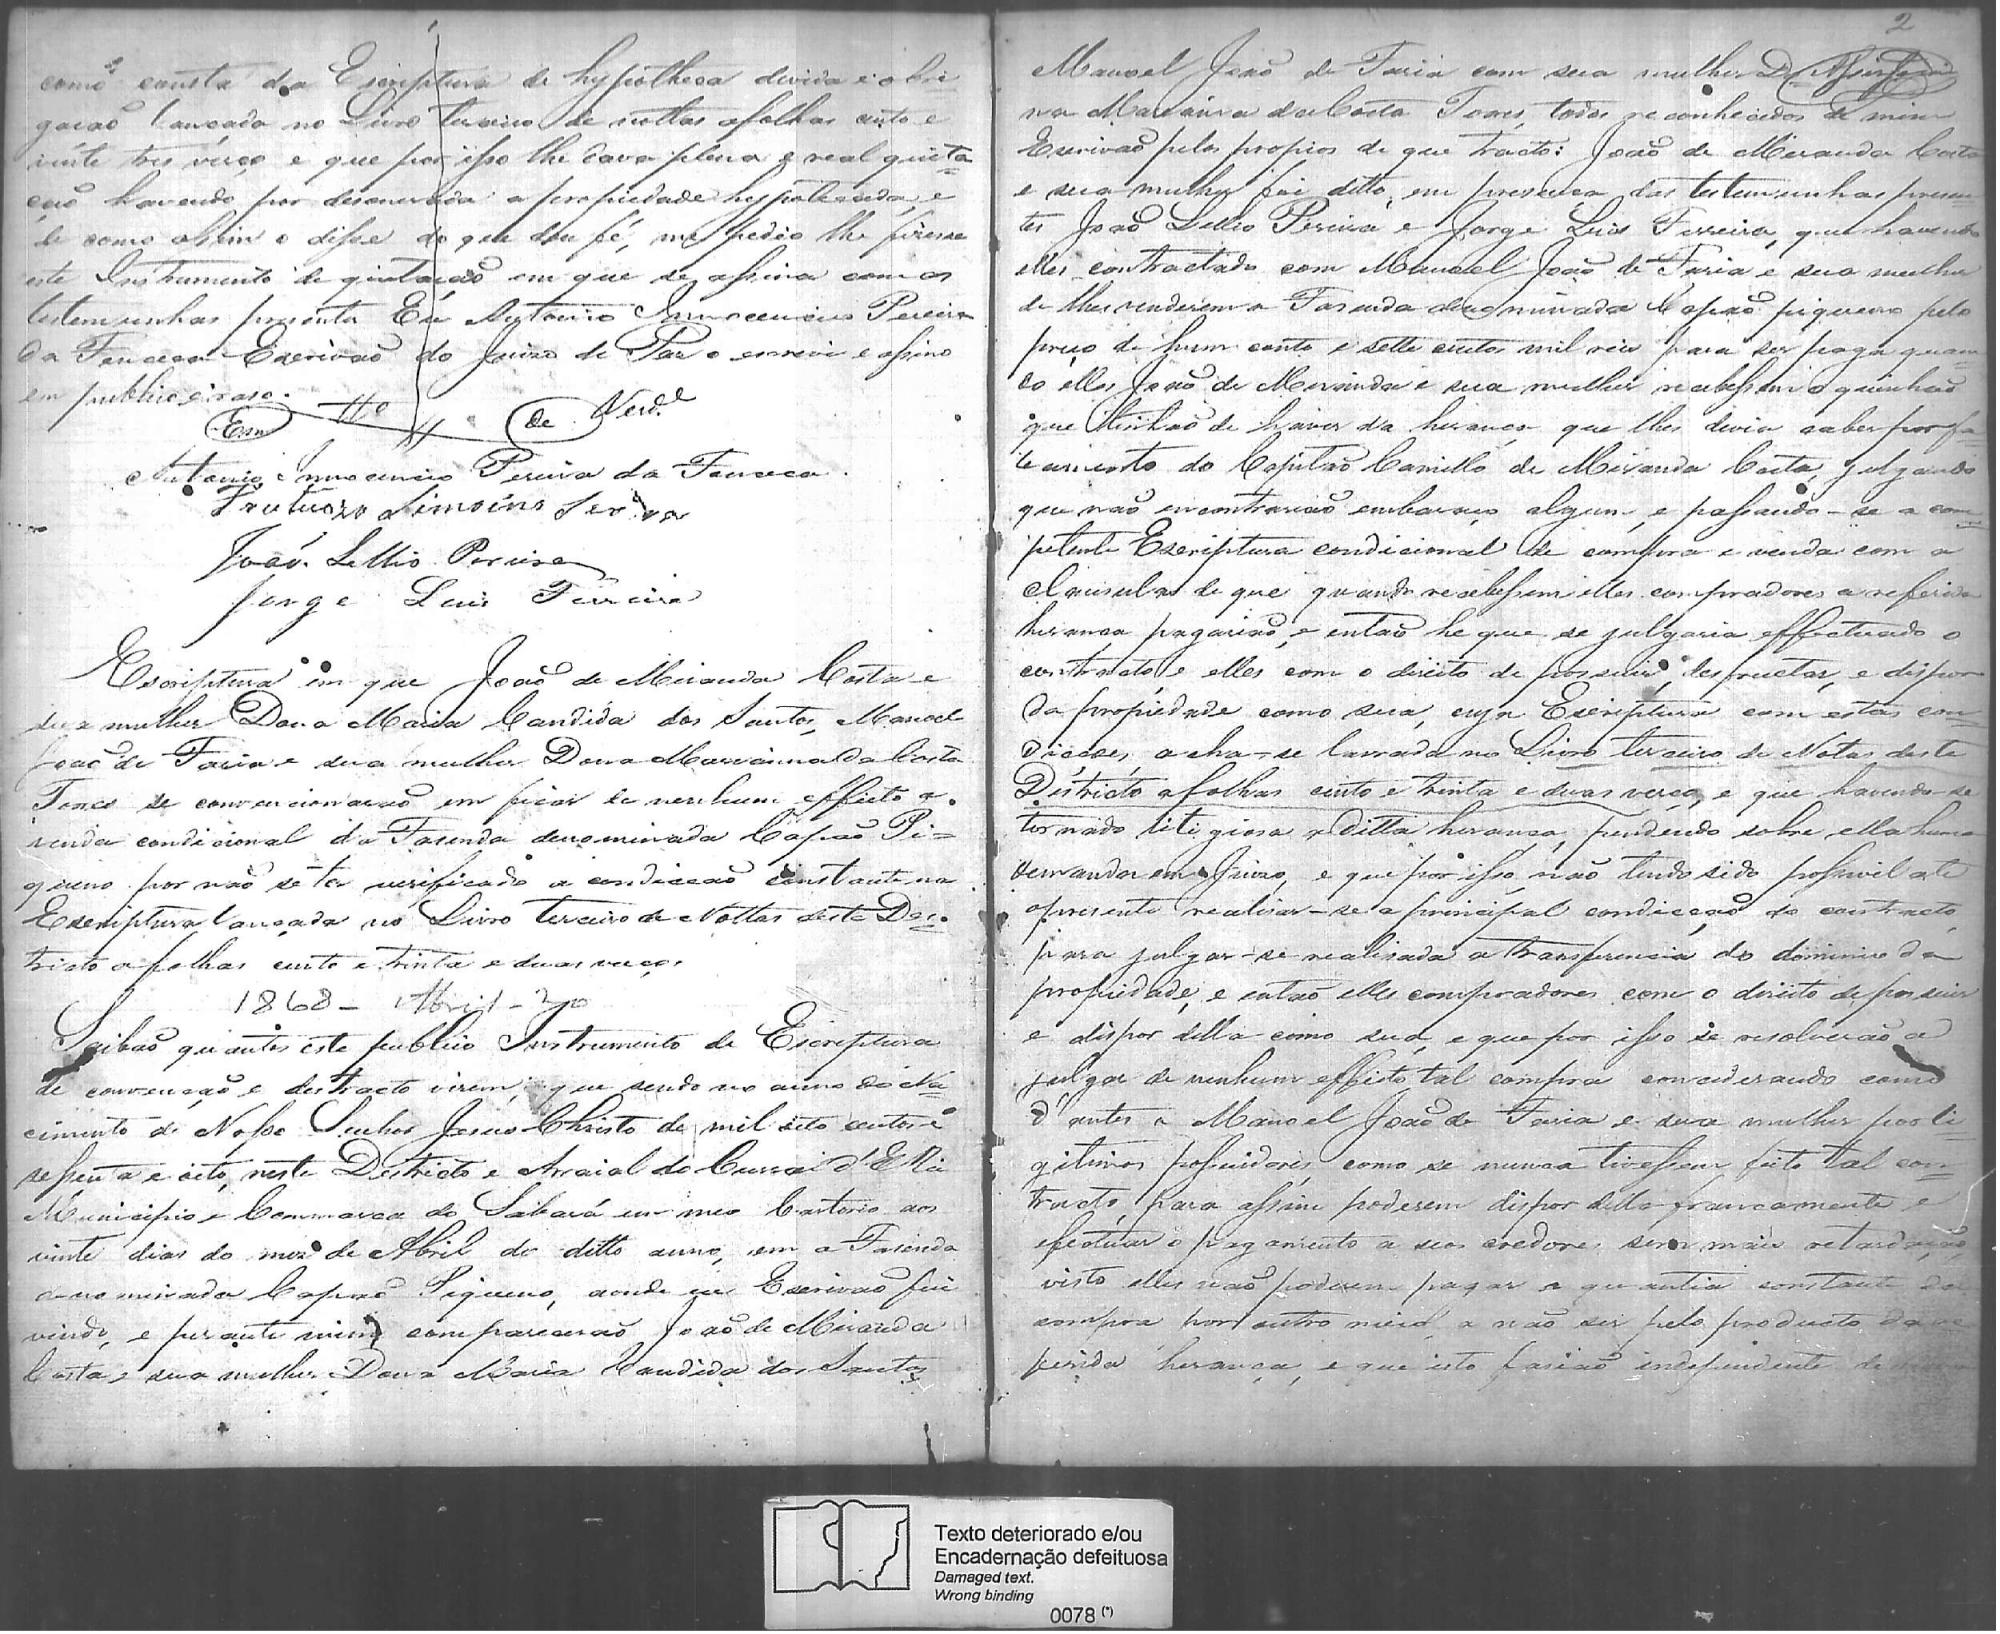 como consta da Escriptura de hypotheca devida e obri-
gacaõ lançada no Livro terceiro de nottas afolhas cento e
vinte tres verço, e que por isso lhe dava plena e real quita-
çaõ havendo por desonerada a propriedade hypotecada, e
de como assim o disse do que dou fé, me pedio lhe fizesse
este Instrumento de quitacaõ em que se assina com as
testemunhas presenta Eu Antonio Innocencio Pereira
da Fonceca Escrivaõ do Juizo de Paz o escrevi e assino
em publico e raso.
Em Tto de Verd.e
Antonio Innocencio Pereira da Fonceca.
Frutuozo Simoins
João Lellis Pereira
Jorge Luis Ferreira
Escriptura em que Joaõ de Miranda Costa e
sua mulher Dona Maria Candida dos Santos, Manoel
Joaõ de Faria e sua mulher Dona Marianna da Costa
Torres se convencionaraõ em ficar de nenhum effeito a
venda condicional da Fasenda denominada Capaõ Pi-
queno por naõ se ter verificado a condiccaõ constante na
Escriptura lançada no Livro terceiro de Nottas deste Des-
tricto a folhas cento e trinta e duas verço.
1868 - Abril - 20
Saibaõ quantos este publico Instrumento de Escriptura
de convençaõ e destracto virem, que sendo no anno do Na-
cimento de Nosso Senhor Jesus Christo de mil oito centos e
sessenta e oito, neste Destricto e Arraial do Curral d'El Rei
Municipio e Commarca do Sabará em meo Cartorio aos
vinte dias do mez de Abril do ditto anno, em a Fasenda
denominada Capaõ Piqueno, aonde eu Escrivaõ fui
vindo, e perante mim compareceraõ Joaõ de Miranda
Costa e sua mulher Dona Maria Candida dos Santos,
2
Manoel Joaõ de Faria com sua mulher D.
na Marianna da Costa Torres, todos reconhecidos de mim
Escrivaõ pelos propios de que tracto: Joaõ de Miranda Costa
e sua mulher foi ditto, em presença das testemunhas presen-
tes Joaõ Lellis Pereira e Jorge Luis Ferreira, que havendo
elles contractado com Manoel Joaõ de Faria e sua mulher
de lhes venderem a Fasenda denominada Capaõ piqueno pelo
preço de hum conto e sette centos mil reis para ser paga quan-
do elles Joaõ de Miranda e sua mulher recebessem o quinhaõ
que tinhaõ de haver da herança que lhes devia caber por fa-
lecimento do Capitaõ Camillo de Miranda Costa, julgando
que naõ encontrariaõ embaraço algum, e passando-se a com-
petente Escriptura condicional de compra e venda com a
clausula de que quando recebessem elles compradores a referida
herança pagariaõ, e entaõ he que se julgaria effectuado o
contracto e elles com o direito de possuir, desfructar, e dispor
da propiedade como sua, cuja Escriptura com estas con-
dicões, acha-se lavrada no Livro terceiro de Notas deste
Districto afolhas cento e trinta e duas verço, e que havendo-se
tornado litigiosa a ditta herança, pendendo sobre ella huma
demanda em Juizo, e que por isso, naõ tendo sido possivel até
opresente realisar-se a principal condicçaõ do contracto
para julgar-se realisada a transferencia do dominio da
propiedade, e entaõ elles compradores com o direito de possuir
e dispor della como sua, e que por isso se resolveraõ a
julgar de nenhum effeito tal compra concederando como
d'antes a Manoel Joaõ de Faria e sua mulher por li-
gitimos possuidores, como se nunca tivessem feito tal con-
tracto, para assim poderem dispor della francamente e
efectuar o pagamento a seos credores sem mais retardaçaõ
visto elles naõ poderem pagar a quantia constante da
compra por outro meio, a naõ ser pelo producto da re-
ferida herança, e que isto fasiaõ independente de
Texto deteriorado e/ou
Encadernação defeituosa
Damaged text.
Wrong binding
0078 (*)